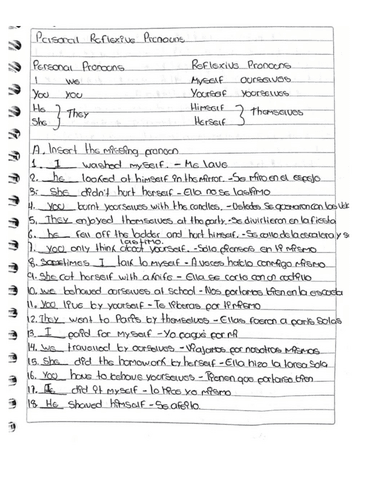 Personal Reflexive Pronouns
Personal Pronouns Reflexive Pronouns
I we Myself ourselves
You You Yourself yourselves
He They Himself Themselves
She Herself
A. Insert the missing pronoun
1. I washed myself. - Me lave
2. he looked at himself in the mirror. - Se miro en el espejo
3. She didn't hurt herself - Ella no se lastimo
4. you burnt yourselves with the candles. - Ustedes se quemaron con las
5. They enjoyed themselves at the party. - Se divirtieron en la fiesta
6. he fell off the ladder and hurt himself. - Se callo de la escalera y se
lastimo.
7. you only think about yourself. - Solo piensas en ti mismo
8. Sometimes I talk to myself - A veces hablo conmigo mismo
9. She cut herself with a knife - Ella se corto con un cuchillo
10. we behaved ourselves at school - Nos portamos bien en la escuela
11. you live by yourself - Te
12. They went to Paris by themselves - Ellas fueron a paris solas
13. I paid for myself - Yo pague por mi
14. we travelled by ourselves - Viajamos por nosotros mismos
15. She did the homework by herself - Ella hizo la tarea sola
16. you have to behave yourselves - Tienen que portarse bien
17. I did it myself - lo hice yo mismo
18. He shaved himself - Se afeito